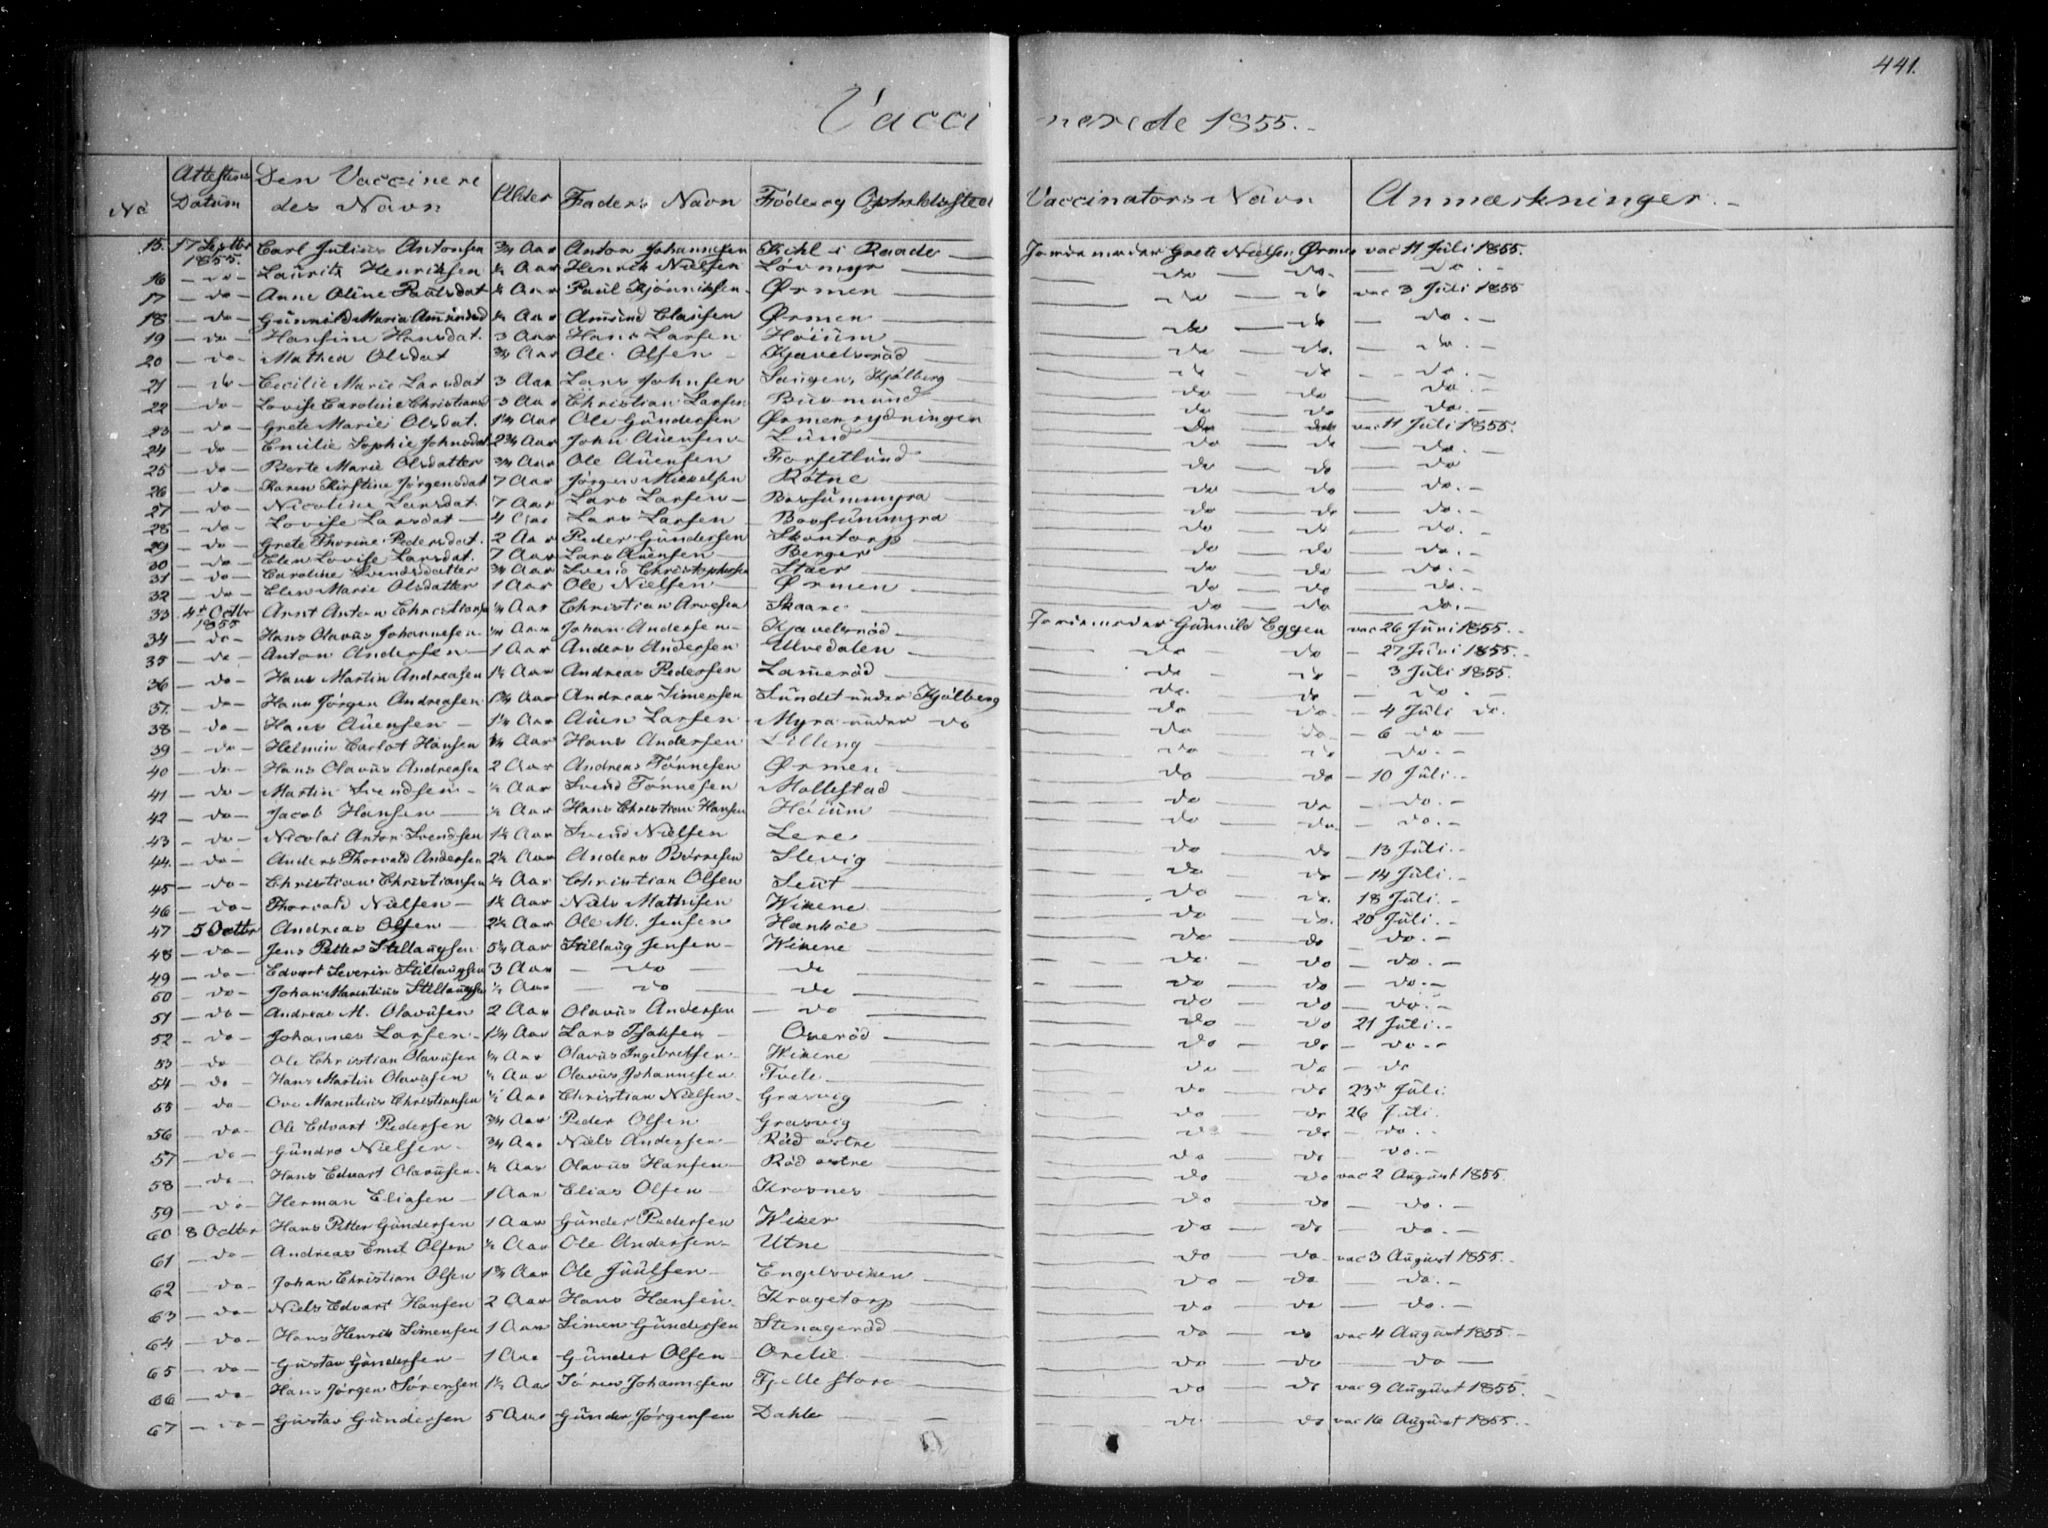 441.
Vaccinerede 1855.
No Attestens Datum Den Vaccineredes Navn Alder Faders Navn Føde og Opholdssted Vaccinators Navn Anmærkninger.
15. 17 Septbr 1855. Carl Julius Antonsen 3/4 Aar Anton Johannesen Kihl i Raade Jordemoder Grete Nielsen Ørmen vac 11 Juli 1855.
16 — do — Lauritz Henriksen 1/2 Aar Henrik Nielsen Løvmyr — do — do — do —
17 — do — Anne Oline Paulsdat 1/2 Aar Paul Kjønniksen Ørmen — do — do vac 3 Juli 1855
18 — do — Gunnild Maria Amundsd 1/2 Aar Amund Claisen Ørmen — do — do — do. —
19 — do — Hansine Hansdat. 3 Aar Hans Larsen Høium — do — do. — do. —
20 — do — Mathea Olsdat 3/4 Aar Ole Olsen Kjavelsrød — do — do — do. —
21 — do — Cecilie Marie Larsdat 3 Aar Lars Johnsen Saugen, Kjølberg — do — do — do. —
22 — do — Lovise Caroline Christiansd 3 Aar Christian Larsen Buvmund — do — do — do. —
23 — do — Grete Marie Olsdat. 1 3/4 Aar Ole Gundersen Ørmenrydningen — do — do vac 11 Juli 1855.
24 — do — Emilie Sophie Johnsdat 2 3/4 Aar John Auensen Lund — do — do — do. —
25 — do — Berte Marie Olsdatter 3/4 Aar Ole Auensen Forsetlund — do — do — do
26 — do — Karen Kirstine Jørgensdat 7 Aar Jørgen Mickelsen Røtne — do — do — do. —
27 — do — Nicoline Larsdat. 7 Aar Lars Larsen Bossummyra — do — do. — do. —
28 — do — Lovise Larsdat 4 Aar Lars Larsen Bossummyra — do — do — do. —
29 — do — Grete Thorine Pedersdat. 2 Aar Peder Gundersen Skontorp — do — do — do. —
30 — do — Elen Lovise Larsdat. 7 Aar Lars Auensen Berger — do — do — do. —
31 — do — Caroline Svendsdatter 3/4 Aar Svend Christophersen Staer — do — do — do. —
32 — do — Elen Marie Olsdatter 1 Aar Ole Nielsen Ørmen — do — do — do. —
33 4de Octbr 1855 Arnt Anton Christians 1/2 Aar Christian Arvesen Skaare Jordemoder Gunnild Eggen vac 26 Juni 1855.
34 — do — Hans Olavus Johannesen 1/4 Aar Johan Andersen Kjavelsrød — do — do — 27 Juni 1855.
35 — do — Anton Andersen 1 Aar Anders Andersen Ulvedalen — do — do — 3 Juli 1855.
36 — do — Hans Martin Andreasen 1 1/2 Aar Andreas Pedersen Lamerød — do. — do — do. —
37. — do — Hans Jørgen Andreasen 1 3/4 Aar Andreas Simensen Sundet under Kjølberg — do — do. — 4 Juli do.
38 — do — Hans Auensen 1 1/2 Aar Auen Larsen Myra under do — do — do. — 6 do —
39 — do — Helmin Carlot Hansen 1/4 Aar Hans Andersen Lilleng — do — do — do. —
40 — do — Hans Olavus Andreasen 2 Aar Andreas Tønnesen Ørmen — do — do — 10 Juli. —
41 — do — Martin Svendsen 1/2 Aar Svend Tønnesen Mollestad — do — do — do. —
42 — do — Jacob Hansen 1/2 Aar Hans Christian Hansen Høium — do — do. — do. —
43 — do — Nicolai Anton Svendsen 1 1/2 Aar Svend Nielsen Lere — do — do — 13 Juli. —
44. — do — Anders Thorvald Andersen 2 1/2 Aar Anders Børresen Slevig — do — do — 14 Juli. —
45 — do — Christian Christiansen 1/2 Aar Christian Olsen Seut — do — do. 18 Juli. —
46 — do — Thorvald Nielsen 1 1/2 Aar Niels Mathisen Wikene — do — do. 20 Juli. —
47 5 Octbr Andreas Olsen 2 1/2 Aar Ole M. Jensen Hankøe — do — do — do. —
48 — do — Jens Petter Stillaugsen 5 3/4 Aar Stillaug Jensen Wikene — do — do — do. —
49 — do — Edvart Severin Stillaugsen 3 Aar — do — do — do — do — do. —
50 — do — Johan Marentius Stillaugsen 1/2 Aar — do — do — do — do — do. —
51 — do — Andreas M. Olavusen 2 Aar Olavus Andersen — do — do — do 21 Juli. —
52 — do — Johannes Larsen 1 3/4 Aar Lars Isaksen Overød — do — do — do. —
53 — do Ole Christian Olavusen 3/4 Aar Olavus Ingebretsen Wikene — do — do — do
54 — do — Hans Martin Olavusen 1/2 Aar Olavus Johannesen Tvete — do — do 23de Juli.
55 — do — Ove Marentius Christiansen 1/2 Aar Christian Nielsen Græsvig — do — do 26 Juli.
56 — do — Ole Edvart Pedersen 3/4 Aar Peder Olsen Græsvig — do — do — do. —
57 — do — Gundro Nielsen 3/4 Aar Niels Andersen Rød østre — do — do — do. —
58 — do — Hans Edvart Olavusen 1/2 Aar Olavus Hansen Rød østre — do — do vac 2 August 1855.
59 — do — Herman Eliasen 1 Aar Elias Olsen Krosnes — do — do — do. —
60 8 Octbr Hans Petter Gundersen 1 Aar Gunder Pedersen Wiker — do — do — do. —
61 — do — Andreas Emil Olsen 1/2 Aar Ole Andersen Utne — do — do vac 3 August 1855.
62 — do — Johan Christian Olsen 1 3/4 Aar Ole Juulsen Engelsviken — do — do do. —
63 — do — Niels Edvart Hansen 2 Aar Hans Hansen Kragetorp — do — do — do. —
64 — do — Hans Henrik Simensen 1 Aar Simen Gundersen Stenagerød — do — do vac 4 August 1855.
65 — do — Gustav Gundersen 1 Aar Gunder Olsen Orelie — do — do — do —
66 — do — Hans Jørgen Sørensen 1 1/2 Aar Søren Johannesen Fjelle store — do — do vac 9 August 1855.
67 — do — Gustav Gundersen 5 Aar Gunder Jørgensen Dahle — do — do vac 16 August 1855.